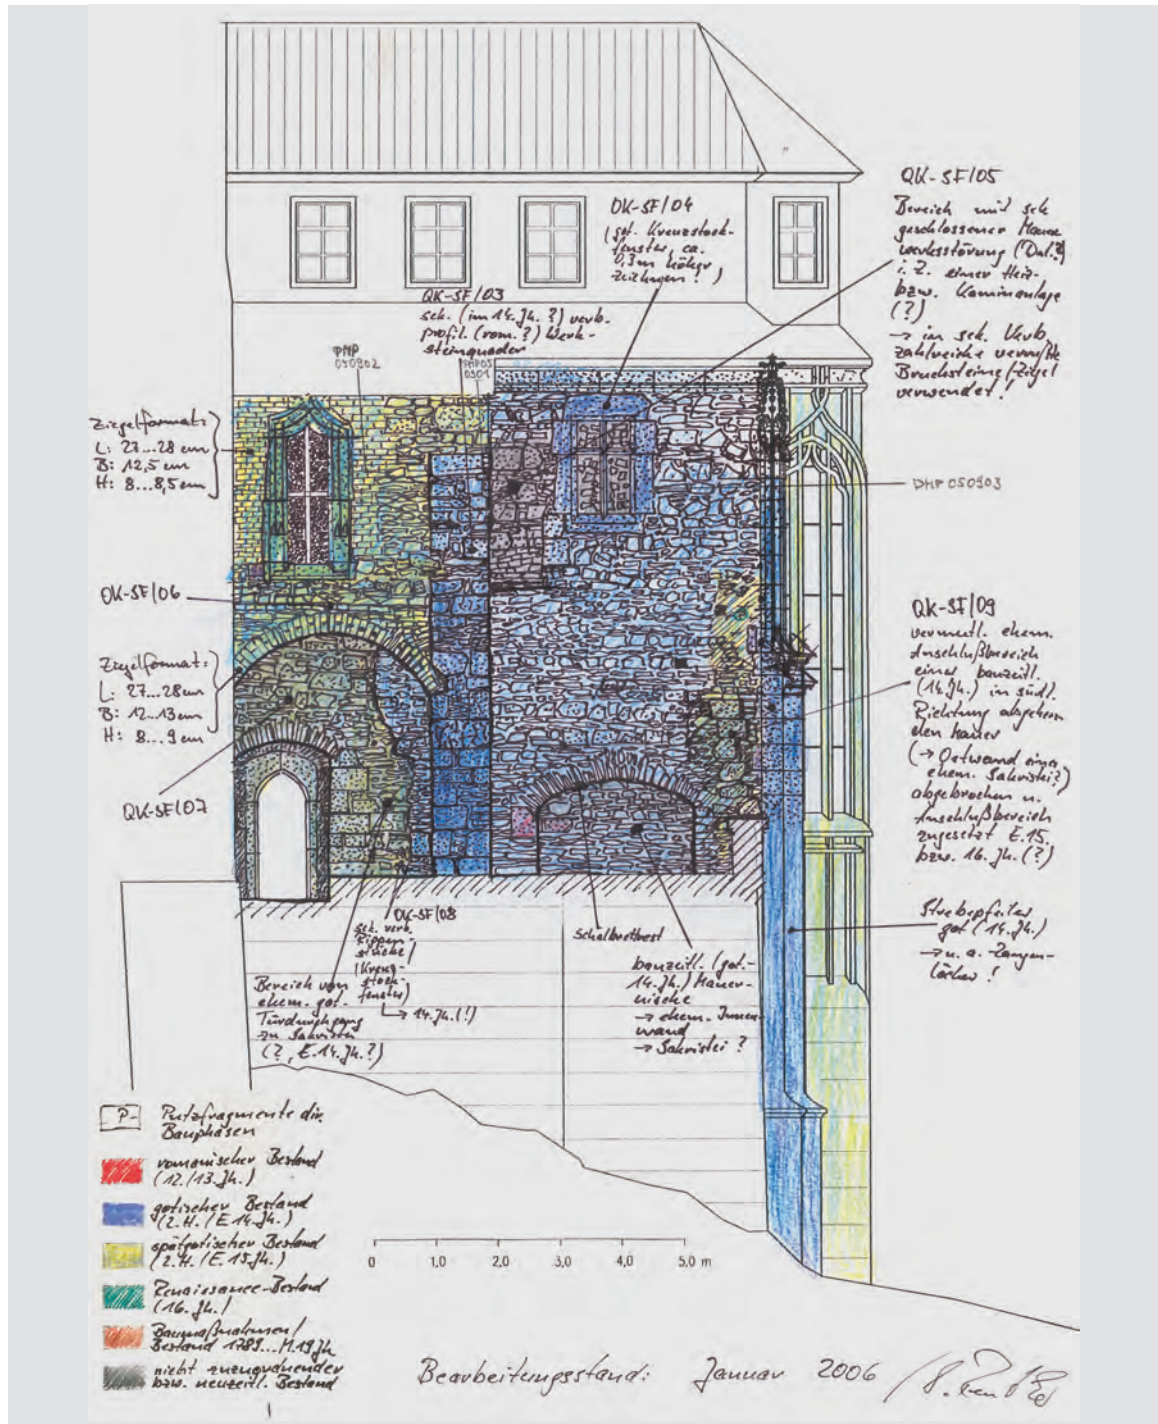 QK-SF/05
Bereich mit sek.
geschlossener Mauer
werksstörung (Dat.?)
i. Z. einer Heiz-
bzw. Kaminanlage
(?)
→ in sek. Verb.
zahlreiche
Bruchsteine/Ziegel
verwendet!
OK-SF/04
(got. Kreuzstock-
fenster, ca.
0,3m höher
!)
QK-SF/03
sek. (im 14. Jh. ?) verb.
profil. (rom.?) Werk-
steinquader
PMP
050902
Ziegelformat:
L: 27...28 cm
B: 12,5 cm
H: 8...8,5 cm
DMP 050903
OK-SF/06
Ziegelformat:
L: 27...28cm
B: 12...13cm
H: 8...9 cm
QK-SF/07
QK-SF/09
vermutl. ehem.
Anschlußbereich
einer bauzeitl.
(14. Jh.) in südl.
Richtung abgehen
den Mauer
(→ Ostwand einer
ehem. Sakristei?)
abgebrochen u.
Anschlußbereich
zugesetzt E. 15.
bzw. 16. Jh. (?)
Strebepfeiler
got (14. Jh.)
→ u. a. Zangen-
löcher!
OK-SF/08
sek. verb.
Rippen-
stücke/
(Kreuz-
stock-
fenster)
→ 14. Jh. (!)
Bereich von
ehem. got.
Türdurchgang
zu Sakristei
(?, E. 14. Jh.?)
Schalbrettrest
bauzeitl. (got.-
14. Jh.) Mauer-
nische
→ ehem. Innen-
wand
→ Sakristei ?
P- Putzfragmente div.
Bauphasen
romanischer Bestand
(12./13. Jh.)
gotischer Bestand
(2. H. / E 14. Jh.)
spätgotischer Bestand
(2. H. / E. 15. Jh.)
Renaissance-Bestand
(16. Jh.)
Baumaßnahmen/
Bestand 1789...M.19.Jh
nicht zuzuordnender
bzw. neuzeitl. Bestand
0 1,0 2,0 3,0 4,0 5,0 m
Bearbeitungsstand: Januar 2006